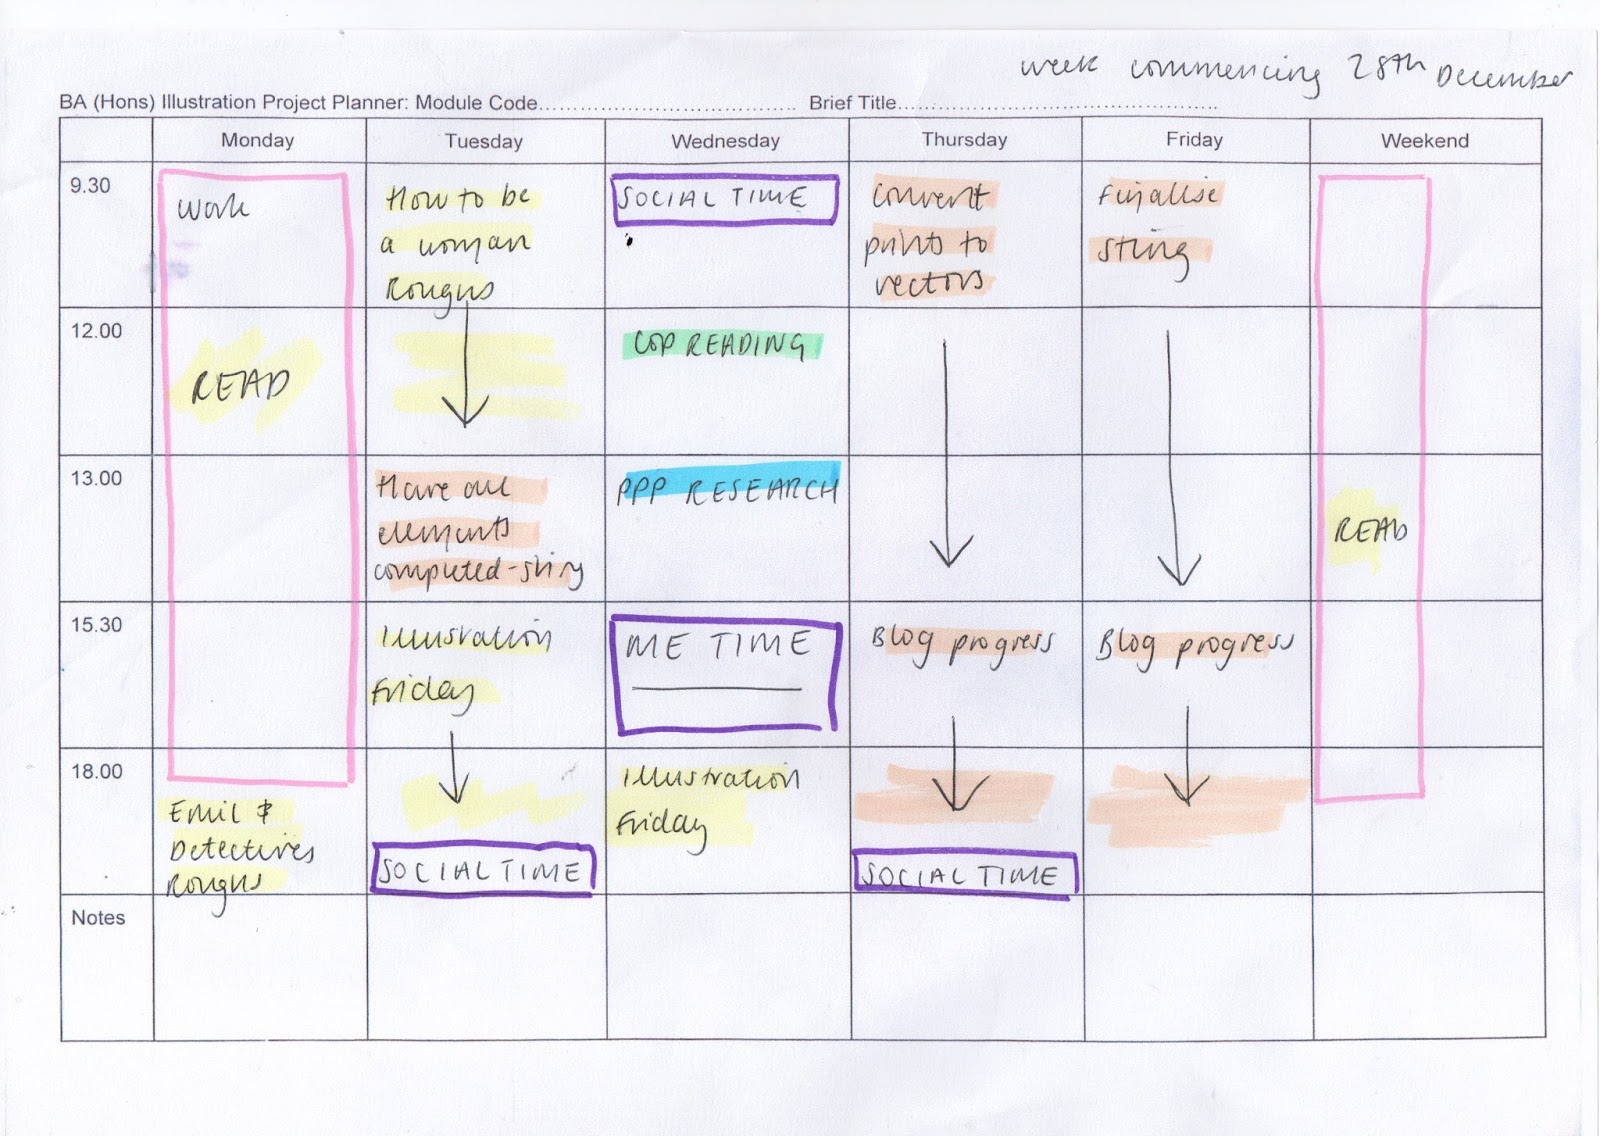 week commencing 28th December
BA (Hons) Illustration Project Planner: Module Code................................................ Brief Title................................................
Monday Tuesday Wednesday Thursday Friday Weekend
9.30
work
How to be
a woman
Roughs
SOCIAL TIME
convert
prints to
vectors
Finalise
Sting
12.00
READ
COP READING
13.00
Have all
elements
computed-sting
PPP RESEARCH
READ
15.30
Illustration
Friday
ME TIME
Blog progress
Blog progress
18.00
Emil &
Detectives
Roughs
SOCIAL TIME
Illustration
Friday
SOCIAL TIME
Notes